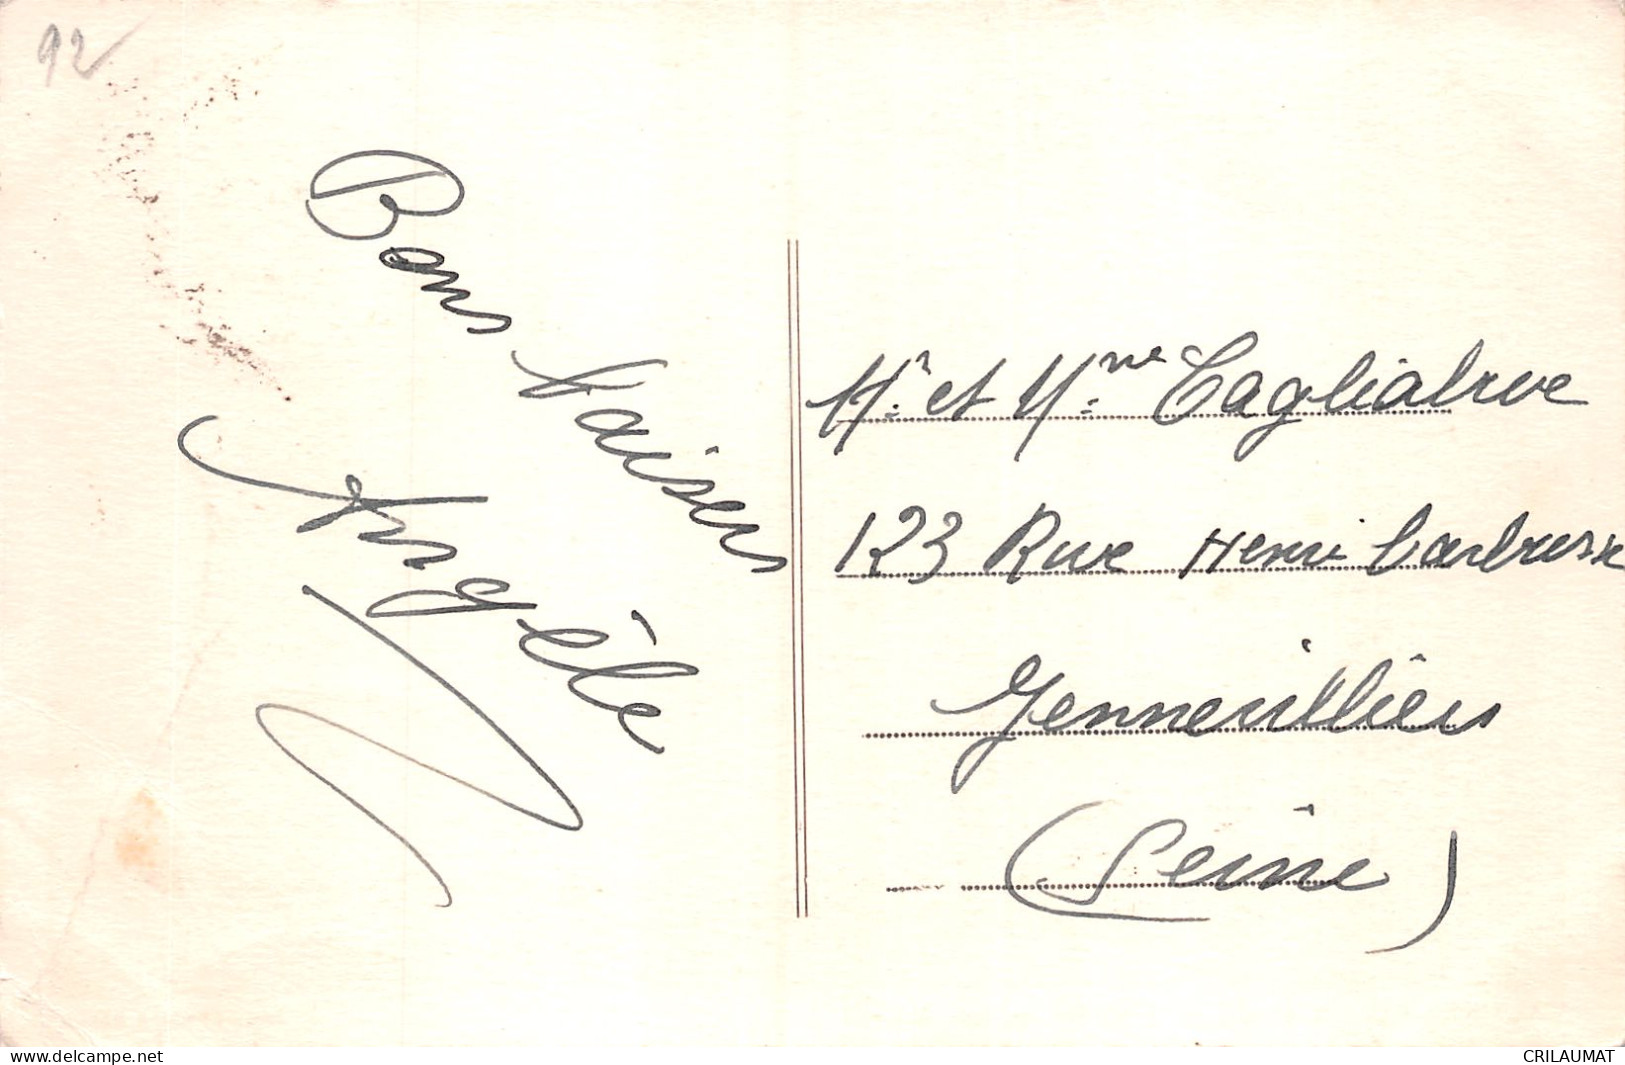 92
Bons Baisers
Angèle
Mr. et Mme. Cagliabrue
123 Rue Henri Barbusse
Gennevilliers
(Seine)
www.delcampe.net
CRILAUMAT